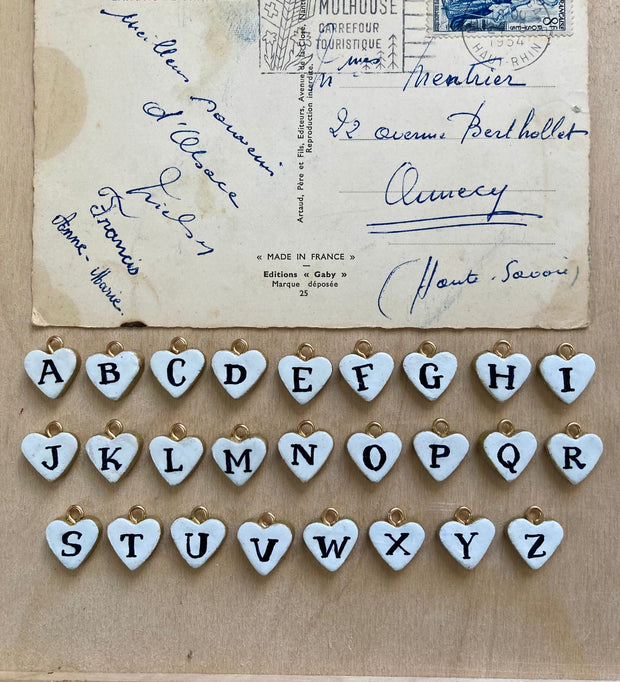 MULHOUSE
CARREFOUR
TOURISTIQUE
8F
1954
HAUT-RHIN
Meilleur souvenir
d'Alsace
Francis
Anne-Marie
Artaud, Père et Fils, Editeurs, Avenue de la Close, Nantes
Reproduction interdite.
« MADE IN FRANCE »
Editions « Gaby »
Marque déposée
25
Mentrier
22 avenue Berthollet
Annecy
(Haute-Savoie)
A B C D E F G H I
J K L M N O P Q R
S T U V W X Y Z